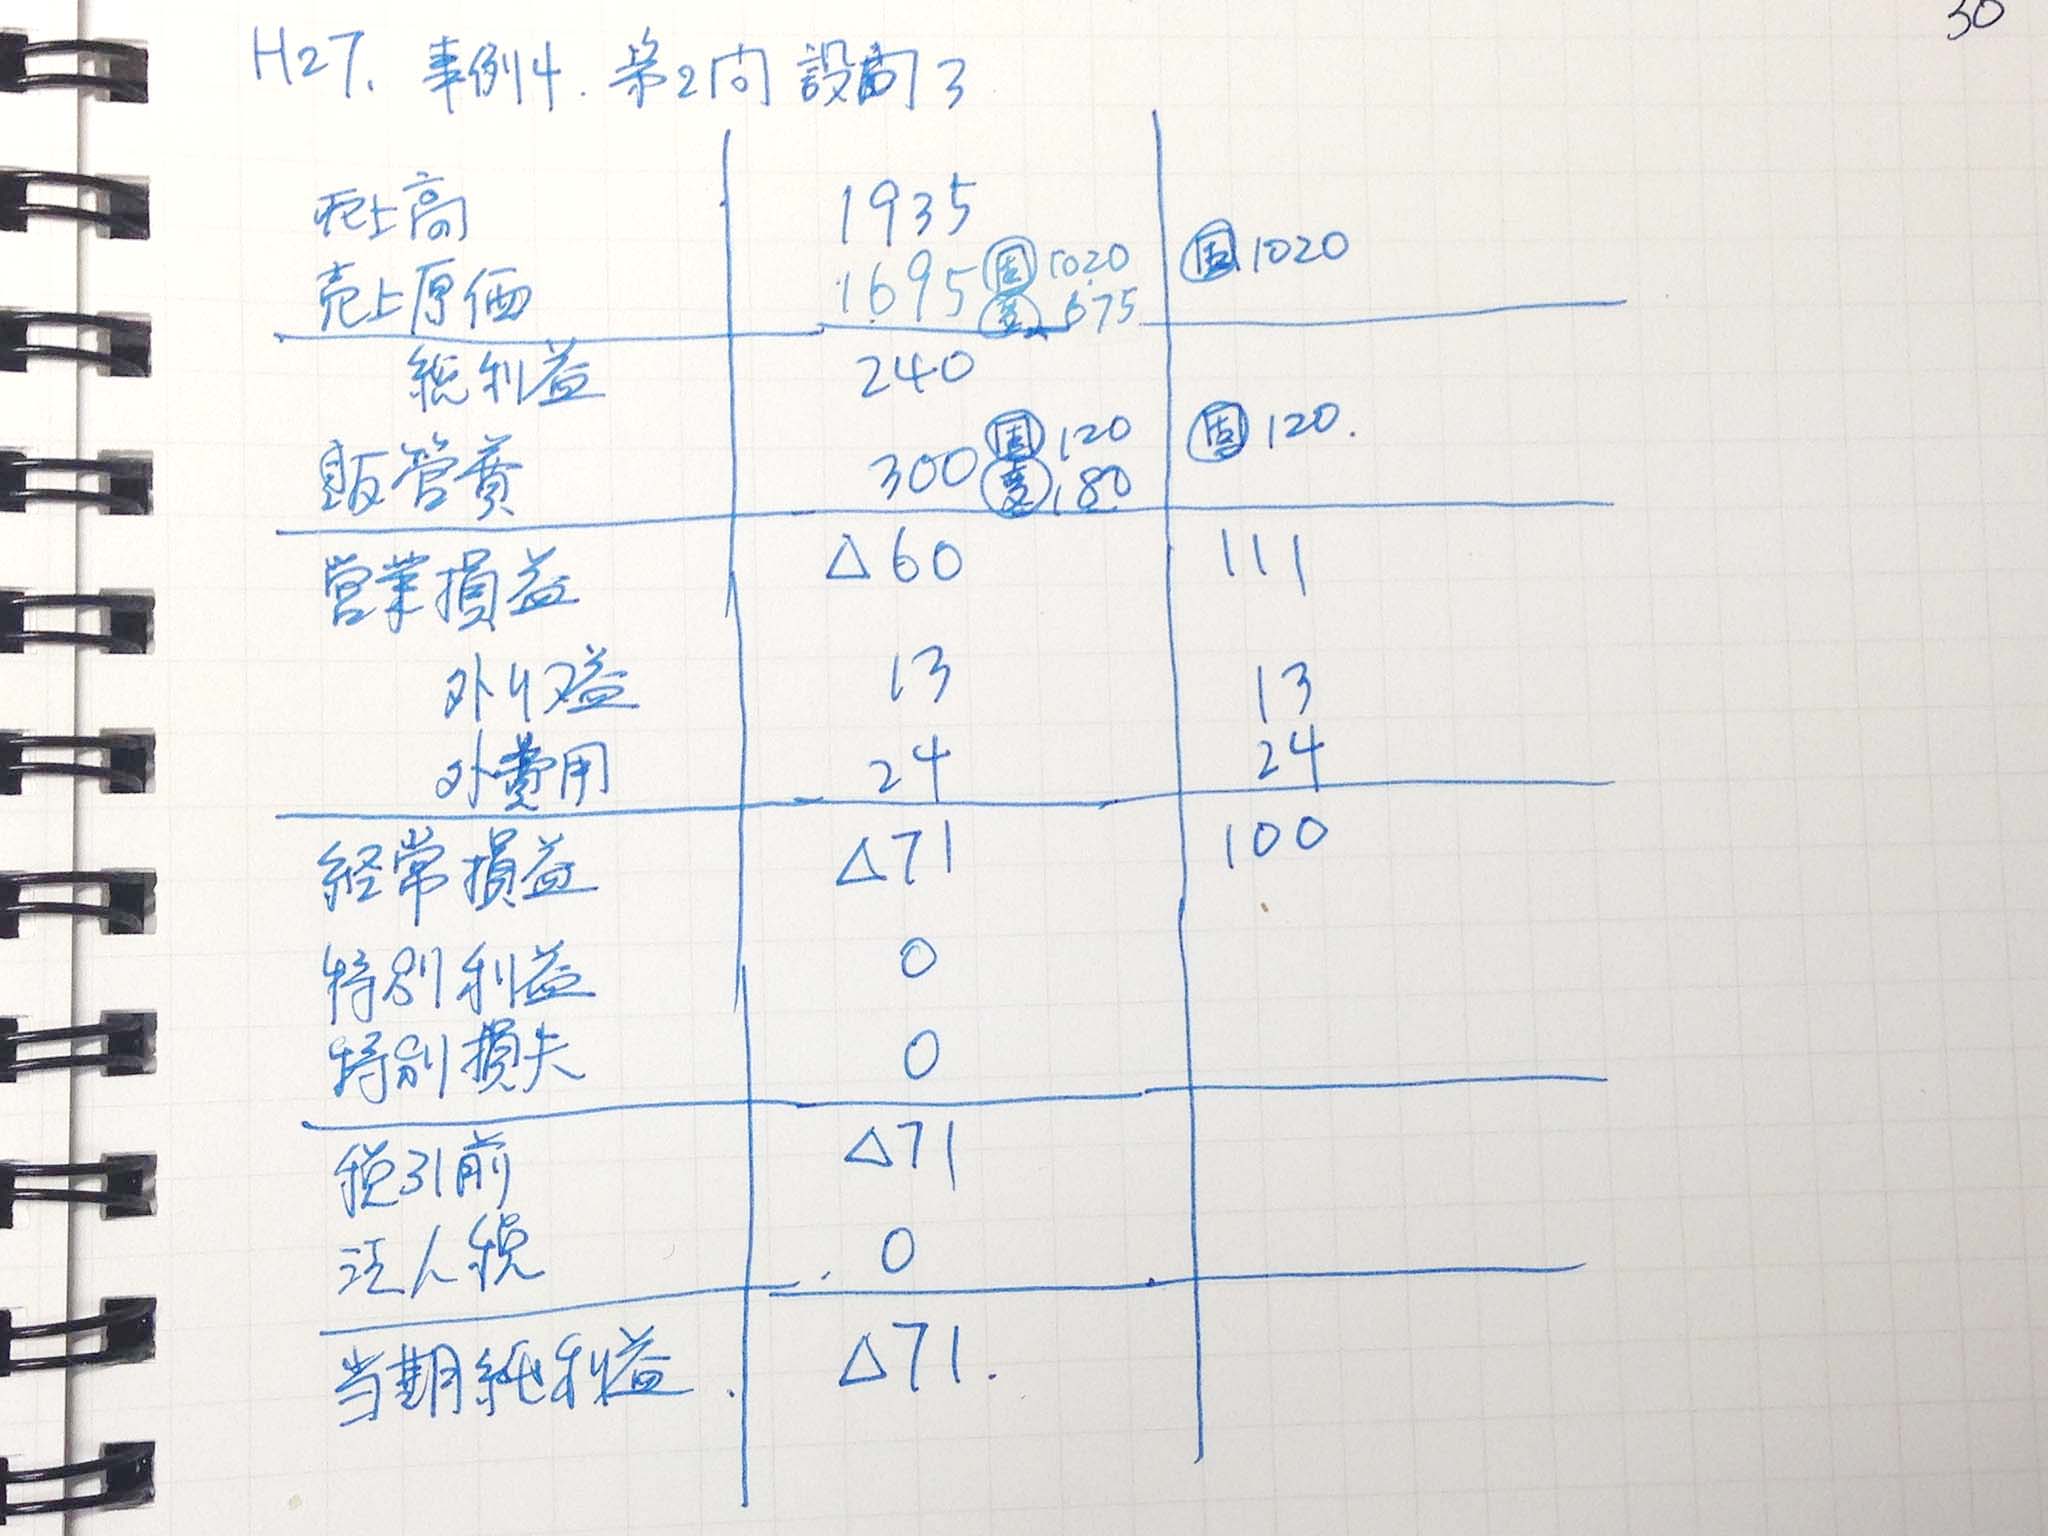 30
H27. 事例4. 第2問 設問3
売上高 1935
売上原価 1695 固 1020 変 675 固 1020
総利益 240
販管費 300 固 120 変 180 固 120.
営業損益 △60 111
外収益 13 13
外費用 24 24
経常損益 △71 100
特別利益 0
特別損失 0
税引前 △71
法人税 0
当期純利益. △71.